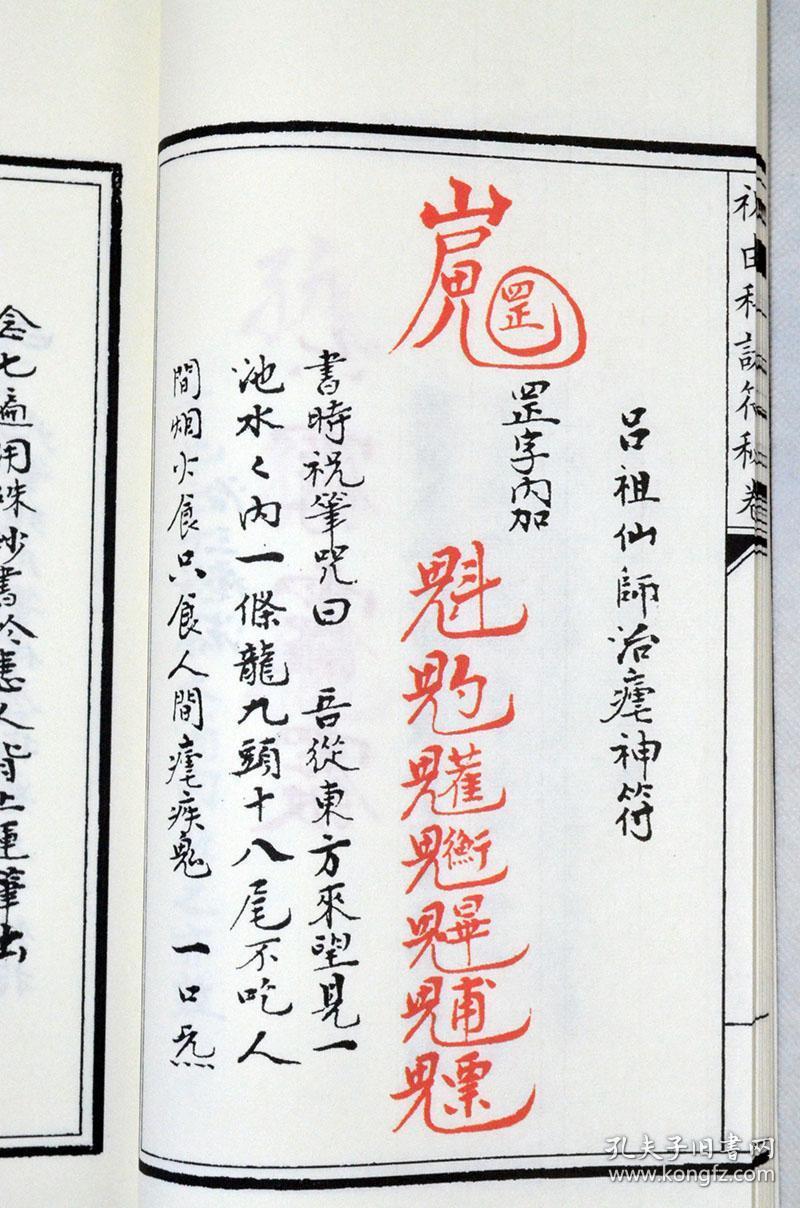 祝由科訣符秘卷
呂祖仙師治瘧神符
罡
罡字內加
魁
魓
魒
書時祝筆咒曰 吾從東方來望見一
池水〻內一條龍九頭十八尾不吃人
間烟火食只食人間瘧疾鬼 一口炁
念七遍用硃砂書於患人背上運筆出
孔夫子旧书网
www.kongfz.com